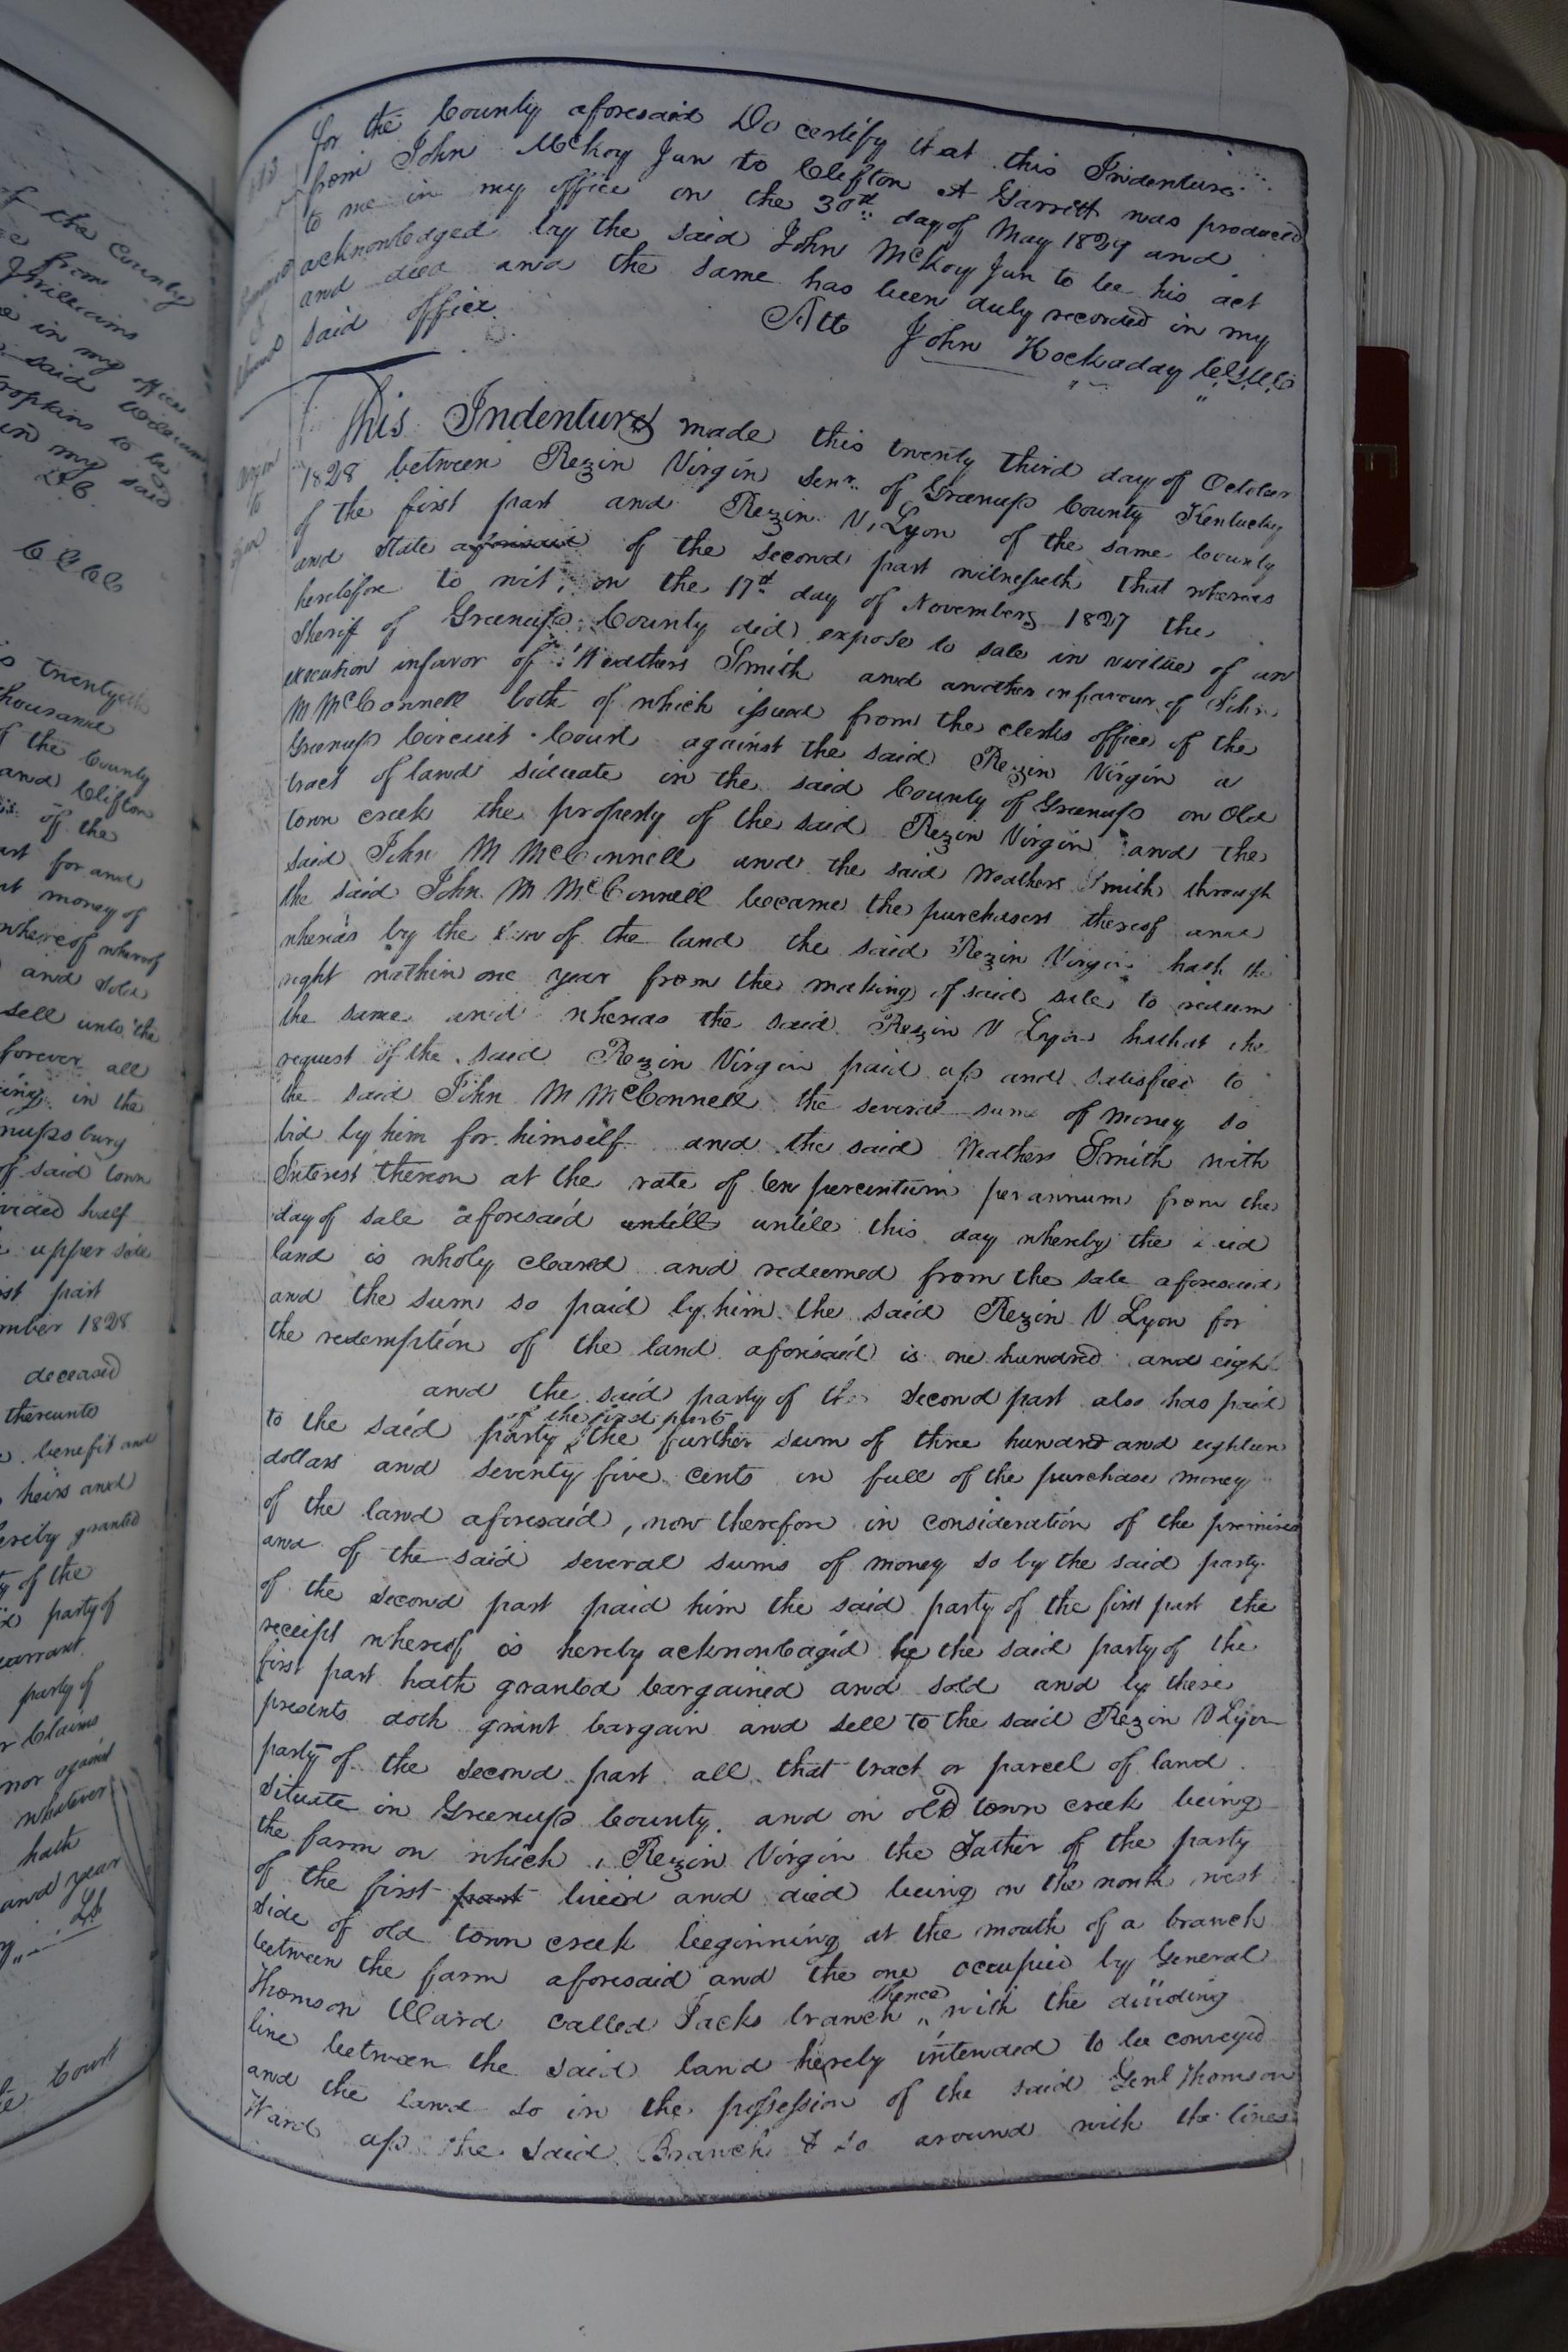 of the County
from
Williams
in my office
said William
Hopkins to be
in my said
C G C C
twentyeth
thousand
of the County
and Clifton
of the
part for and
money of
whereof whereof
and sold
sell unto the
forever all
in the
nupsburg
of said town
vided half
upper side
part
mber 1828
deceased
thereunto
benefit and
heirs and
hereby granted
of the
party of
warrant
party of
Claims
nor against
whatever
hath
and year
LS
Court
for the County aforesaid Do certify that this Indenture
from John McKoy Jun to Clifton A Garrett was produced
to me in my office on the 30th day of May 1829 and
acknowledged by the said John McKoy Jun to be his act
and deed and the same has been duly recorded in my
said office.
Att John Hockaday C.G.C.C
Virgin
to
Lyon
This Indenture made this twenty third day of October
1828 between Rezin Virgin Senr. of Greenup County Kentucky
of the first part and Rezin V, Lyon of the same County
and state aforesaid of the second part witnesseth that whereas
heretofore to wit, on the 17th day of November 1827 the
Sheriff of Greenup County did expose to sale in virtue of an
execution infavor of Weathers Smith and another infavour of John
M McConnell both of which issued from the clerks office of the
Greenup Circuit Court against the said Rezin Virgin a
tract of land situate in the said County of Greenup on Old
town creek the property of the said Rezin Virgin and the
said John M McConnell and the said Weathers Smith through
the said John M McConnell became the purchasers thereof and
whereas by the law of the land the said Rezin Virgin hath the
right within one year from the making of said sale to redeem
the same and whereas the said Rezin V Lyon hathat the
request of the said Rezin Virgin paid up and satisfied to
the said John M McConnell the several sums of money so
bid by him for himself and the said Weathers Smith with
Interest thereon at the rate of ten percentum per annum from the
day of sale aforesaid untill untill this day whereby the said
land is wholy cleared and redeemed from the sale aforesaid
and the sum so paid by him the said Rezin V Lyon for
the redemption of the land aforesaid is one hundred and eight
and the said party of the second part also has paid
to the said party of the first part the further sum of three hundred and eighteen
dollars and seventy five cents in full of the purchase money
of the land aforesaid, now therefore in consideration of the premises
and of the said several sums of money so by the said party
of the second part paid him the said party of the first part the
receipt whereof is hereby acknowledged he the said party of the
first part hath granted bargained and sold and by these
presents doth grant bargain and sell to the said Rezin V Lyon
party of the second part all that tract or parcel of land
situate in Greenup County. and on old town creek being
the farm on which Rezin Virgin the Father of the party
of the first part lived and died being on the north west
side of old town creek beginning at the mouth of a branch
between the farm aforesaid and the one occupied by General
Thomson Ward called Jacks branch thence with the dividing
line between the said land hereby intended to be conveyed
and the land so in the possession of the said Genl Thomson
Ward up the said Branch & so around with the lines